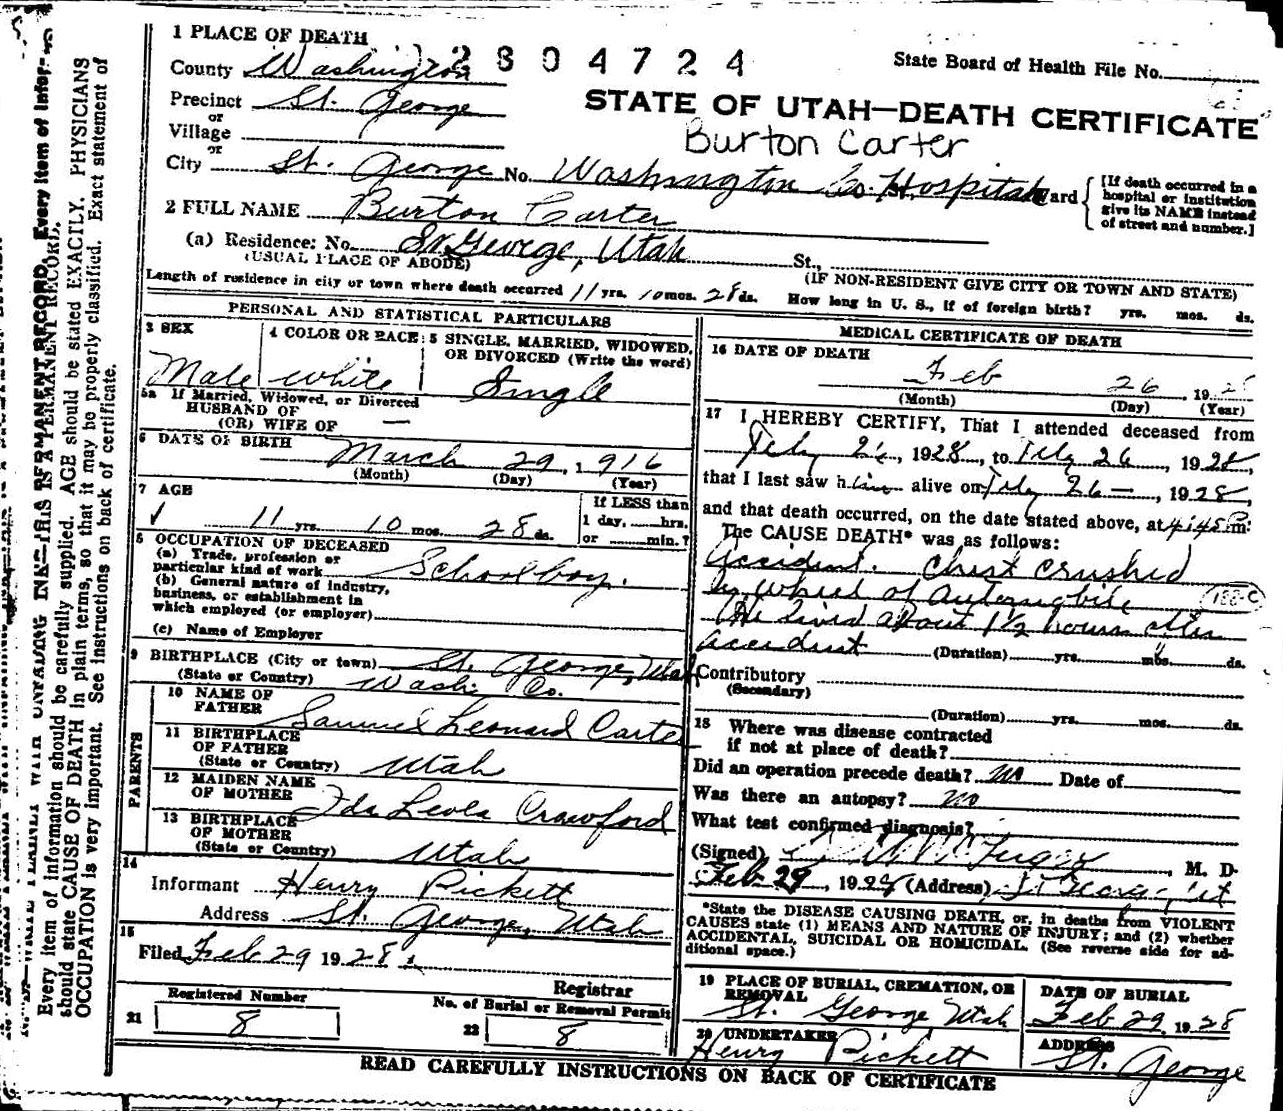 1 PLACE OF DEATH
2804724
State Board of Health File No.
County Washington
Precinct St. George
or
Village
or
STATE OF UTAH—DEATH CERTIFICATE
Burton Carter
City St. George No. Washington Co. Hospital Ward
[If death occurred in a hospital or institution give its NAME instead of street and number.]
2 FULL NAME Burton Carter
(a) Residence: No. St George, Utah St.,
(USUAL PLACE OF ABODE) (IF NON-RESIDENT GIVE CITY OR TOWN AND STATE)
Length of residence in city or town where death occurred 11 yrs. 10 mos. 28 ds. How long in U. S., if of foreign birth? yrs. mos. ds.
PERSONAL AND STATISTICAL PARTICULARS
3 SEX
Male
4 COLOR OR RACE
white
5 SINGLE, MARRIED, WIDOWED, OR DIVORCED (Write the word)
Single
5a If Married, Widowed, or Divorced
HUSBAND OF
(OR) WIFE OF —
6 DATE OF BIRTH
March 29, 1916
(Month) (Day) (Year)
7 AGE
11 yrs. 10 mos. 28 ds.
If LESS than
1 day, hrs.
or min.?
8 OCCUPATION OF DECEASED
(a) Trade, profession or
particular kind of work Schoolboy.
(b) General nature of industry,
business, or establishment in
which employed (or employer)
(c) Name of Employer
9 BIRTHPLACE (City or town) St. George, Utah
(State or Country) Wash. Co.
PARENTS
10 NAME OF
FATHER Samuel Leonard Carter
11 BIRTHPLACE
OF FATHER
(State or Country) Utah
12 MAIDEN NAME
OF MOTHER Ida Leola Crawford
13 BIRTHPLACE
OF MOTHER
(State or Country) Utah
14
Informant Henry Pickett
Address St. George, Utah
15
Filed Feb 29 1928
Registrar
Registered Number
21 8
No. of Burial or Removal Permit
22 8
MEDICAL CERTIFICATE OF DEATH
16 DATE OF DEATH
Feb 26, 1928
(Month) (Day) (Year)
17 I HEREBY CERTIFY, That I attended deceased from
Feby 26, 1928, to Feby 26, 1928,
that I last saw him alive on Feby 26—, 1928,
and that death occurred, on the date stated above, at 4:45 P m.
The CAUSE DEATH* was as follows:
Accident. Chest crushed
by wheel of automobile
188-C
He lived about 1½ hours after
accident (Duration) yrs. mos. ds.
Contributory
(Secondary)
(Duration) yrs. mos. ds.
18 Where was disease contracted
if not at place of death?
Did an operation precede death? no Date of
Was there an autopsy? no
What test confirmed diagnosis?
(Signed) M. D.
Feb 29, 1928 (Address) St George, Ut
*State the DISEASE CAUSING DEATH, or, in deaths from VIOLENT
CAUSES state (1) MEANS AND NATURE OF INJURY; and (2) whether
ACCIDENTAL, SUICIDAL OR HOMICIDAL. (See reverse side for ad-
ditional space.)
19 PLACE OF BURIAL, CREMATION, OR
REMOVAL
St. George Utah
DATE OF BURIAL
Feb 29, 1928
20 UNDERTAKER
Henry Pickett
ADDRESS
St. George
READ CAREFULLY INSTRUCTIONS ON BACK OF CERTIFICATE
Every item of information should be carefully supplied. AGE should be stated EXACTLY. PHYSICIANS
should state CAUSE OF DEATH in plain terms, so that it may be properly classified. Exact statement of
OCCUPATION is very important. See instructions on back of certificate.